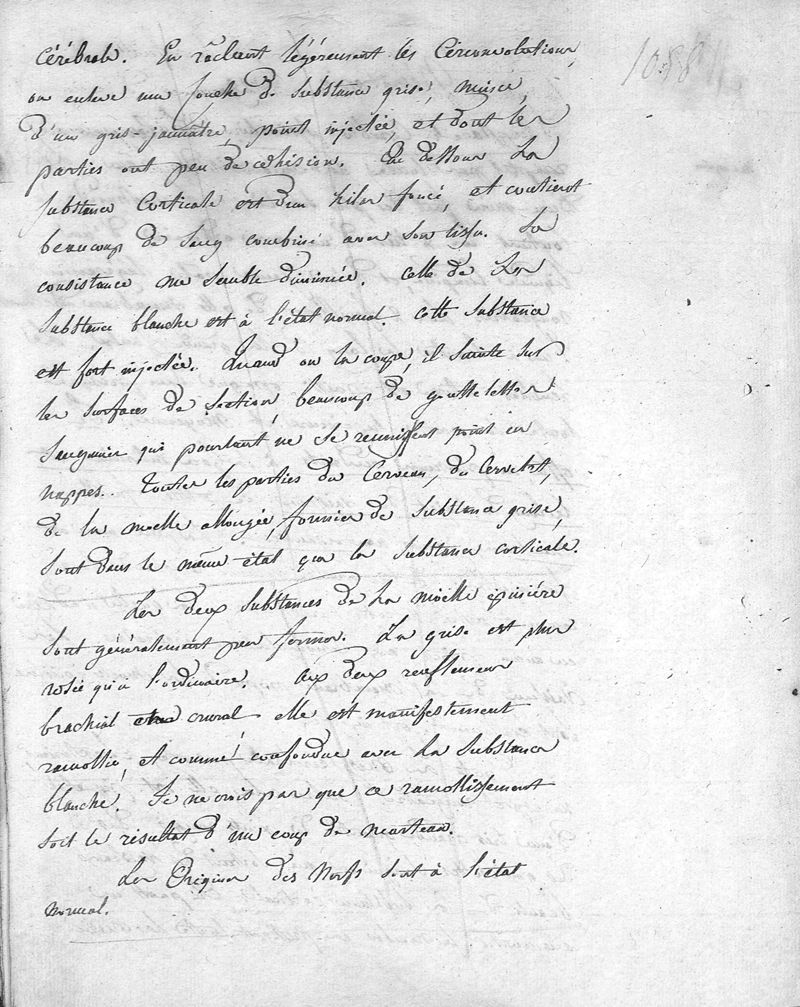 cérébrale. En râclant légèrement les Circonvolutions,
on enleve une couche de substance grise, mince,
d'un gris-jaunâtre, point injectée, et dont les
parties ont peu de cohésion. Au dessous la
substance Corticale est d'un lilas foncé, et contient
beaucoup de sang combiné avec son tissu. Sa
consistance me semble diminuée. Celle de la
substance blanche est à l'état normal. cette substance
est fort injectée. Quand on la coupe, il suinte sur
les surfaces de section, beaucoup de gouttelettes
sanguines qui pourtant ne se reunissent point en
nappes. Toutes les parties du Cerveau, du Cervelet,
de la moelle allongée, formées de substance grise,
sont dans le même état que la substance corticale.
Les deux substances de la moëlle épinière
sont généralement peu fermes. La grise est plus
rosée qu'à l'ordinaire. Aux deux renflemens
brachial et crural elle est manifestement
ramollie, et comme confondue avec la substance
blanche. Je ne crois pas que ce ramollissement
soit le résultat d'un coup de marteau.
Les Origines des Nerfs sont à l'état
normal.